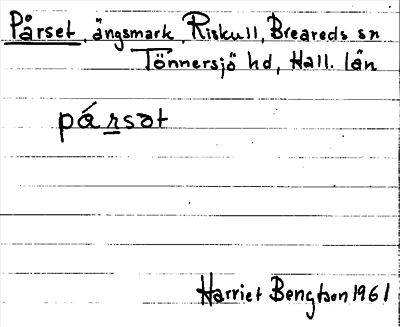 Pårset, ängsmark, Riskull, Breareds sn
Tönnersjö hd, Hall. län
pársət
Harriet Bengtson 1961